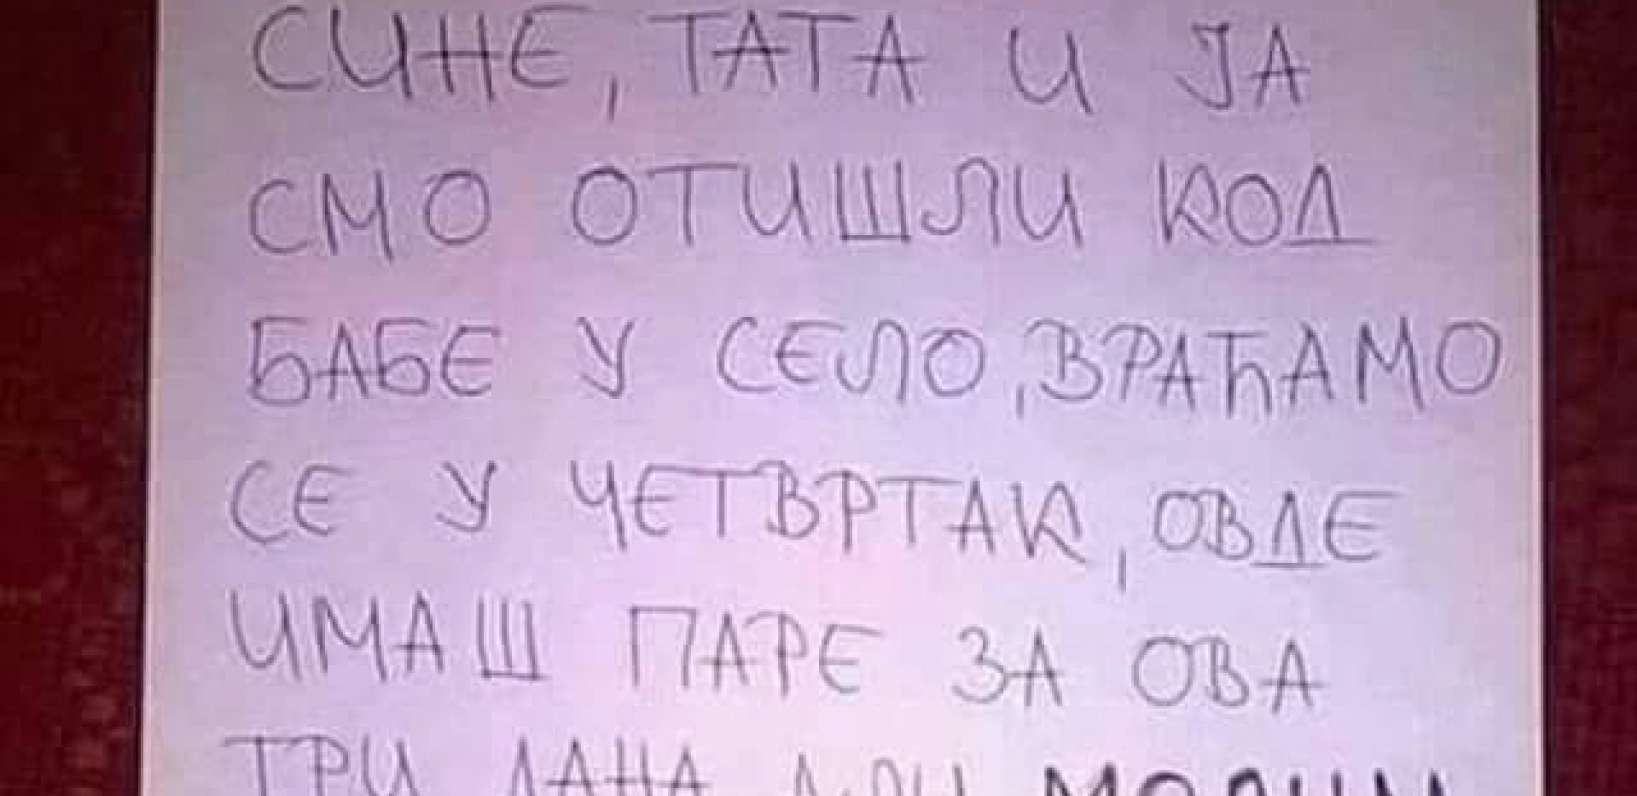 СИНЕ, ТАТА И ЈА
СМО ОТИШЛИ КОД
БАБЕ У СЕЛО, ВРАЋАМО
СЕ У ЧЕТВРТАК, ОВДЕ
ИМАШ ПАРЕ ЗА ОВА
ТРИ ДАНА